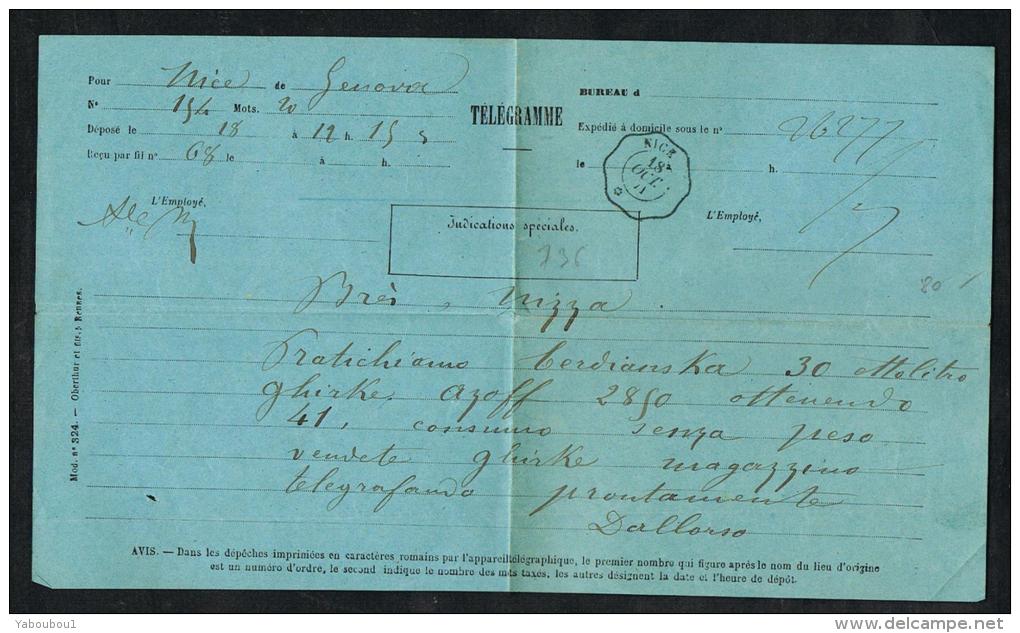 Pour Nice de Genova
N° 154 Mots. 20
Déposé le 18 à 12 h. 15 s
Reçu par fil n° 68 le à h.
L'Employé,
TÉLÉGRAMME
BUREAU d
Expédié à domicile sous le n° 26277
le h.
NICE
18
OCT.
71
L'Employé,
Indications spéciales.
736
80
Brès, Nizza.
Pratichiamo berdianska 30 ettolitro
ghirke azoff 2850 ottenendo
41, consumo senza peso
vendete ghirke magazzino
telegrafando prontamente
Dallorso
Mod. n° 324. — Oberthur et fils, à Rennes.
AVIS. — Dans les dépêches imprimées en caractères romains par l'appareil télégraphique, le premier nombre qui figure après le nom du lieu d'origine
est un numéro d'ordre, le second indique le nombre des mots taxés, les autres désignent la date et l'heure de dépôt.
Yaboubou1
www.delcampe.net